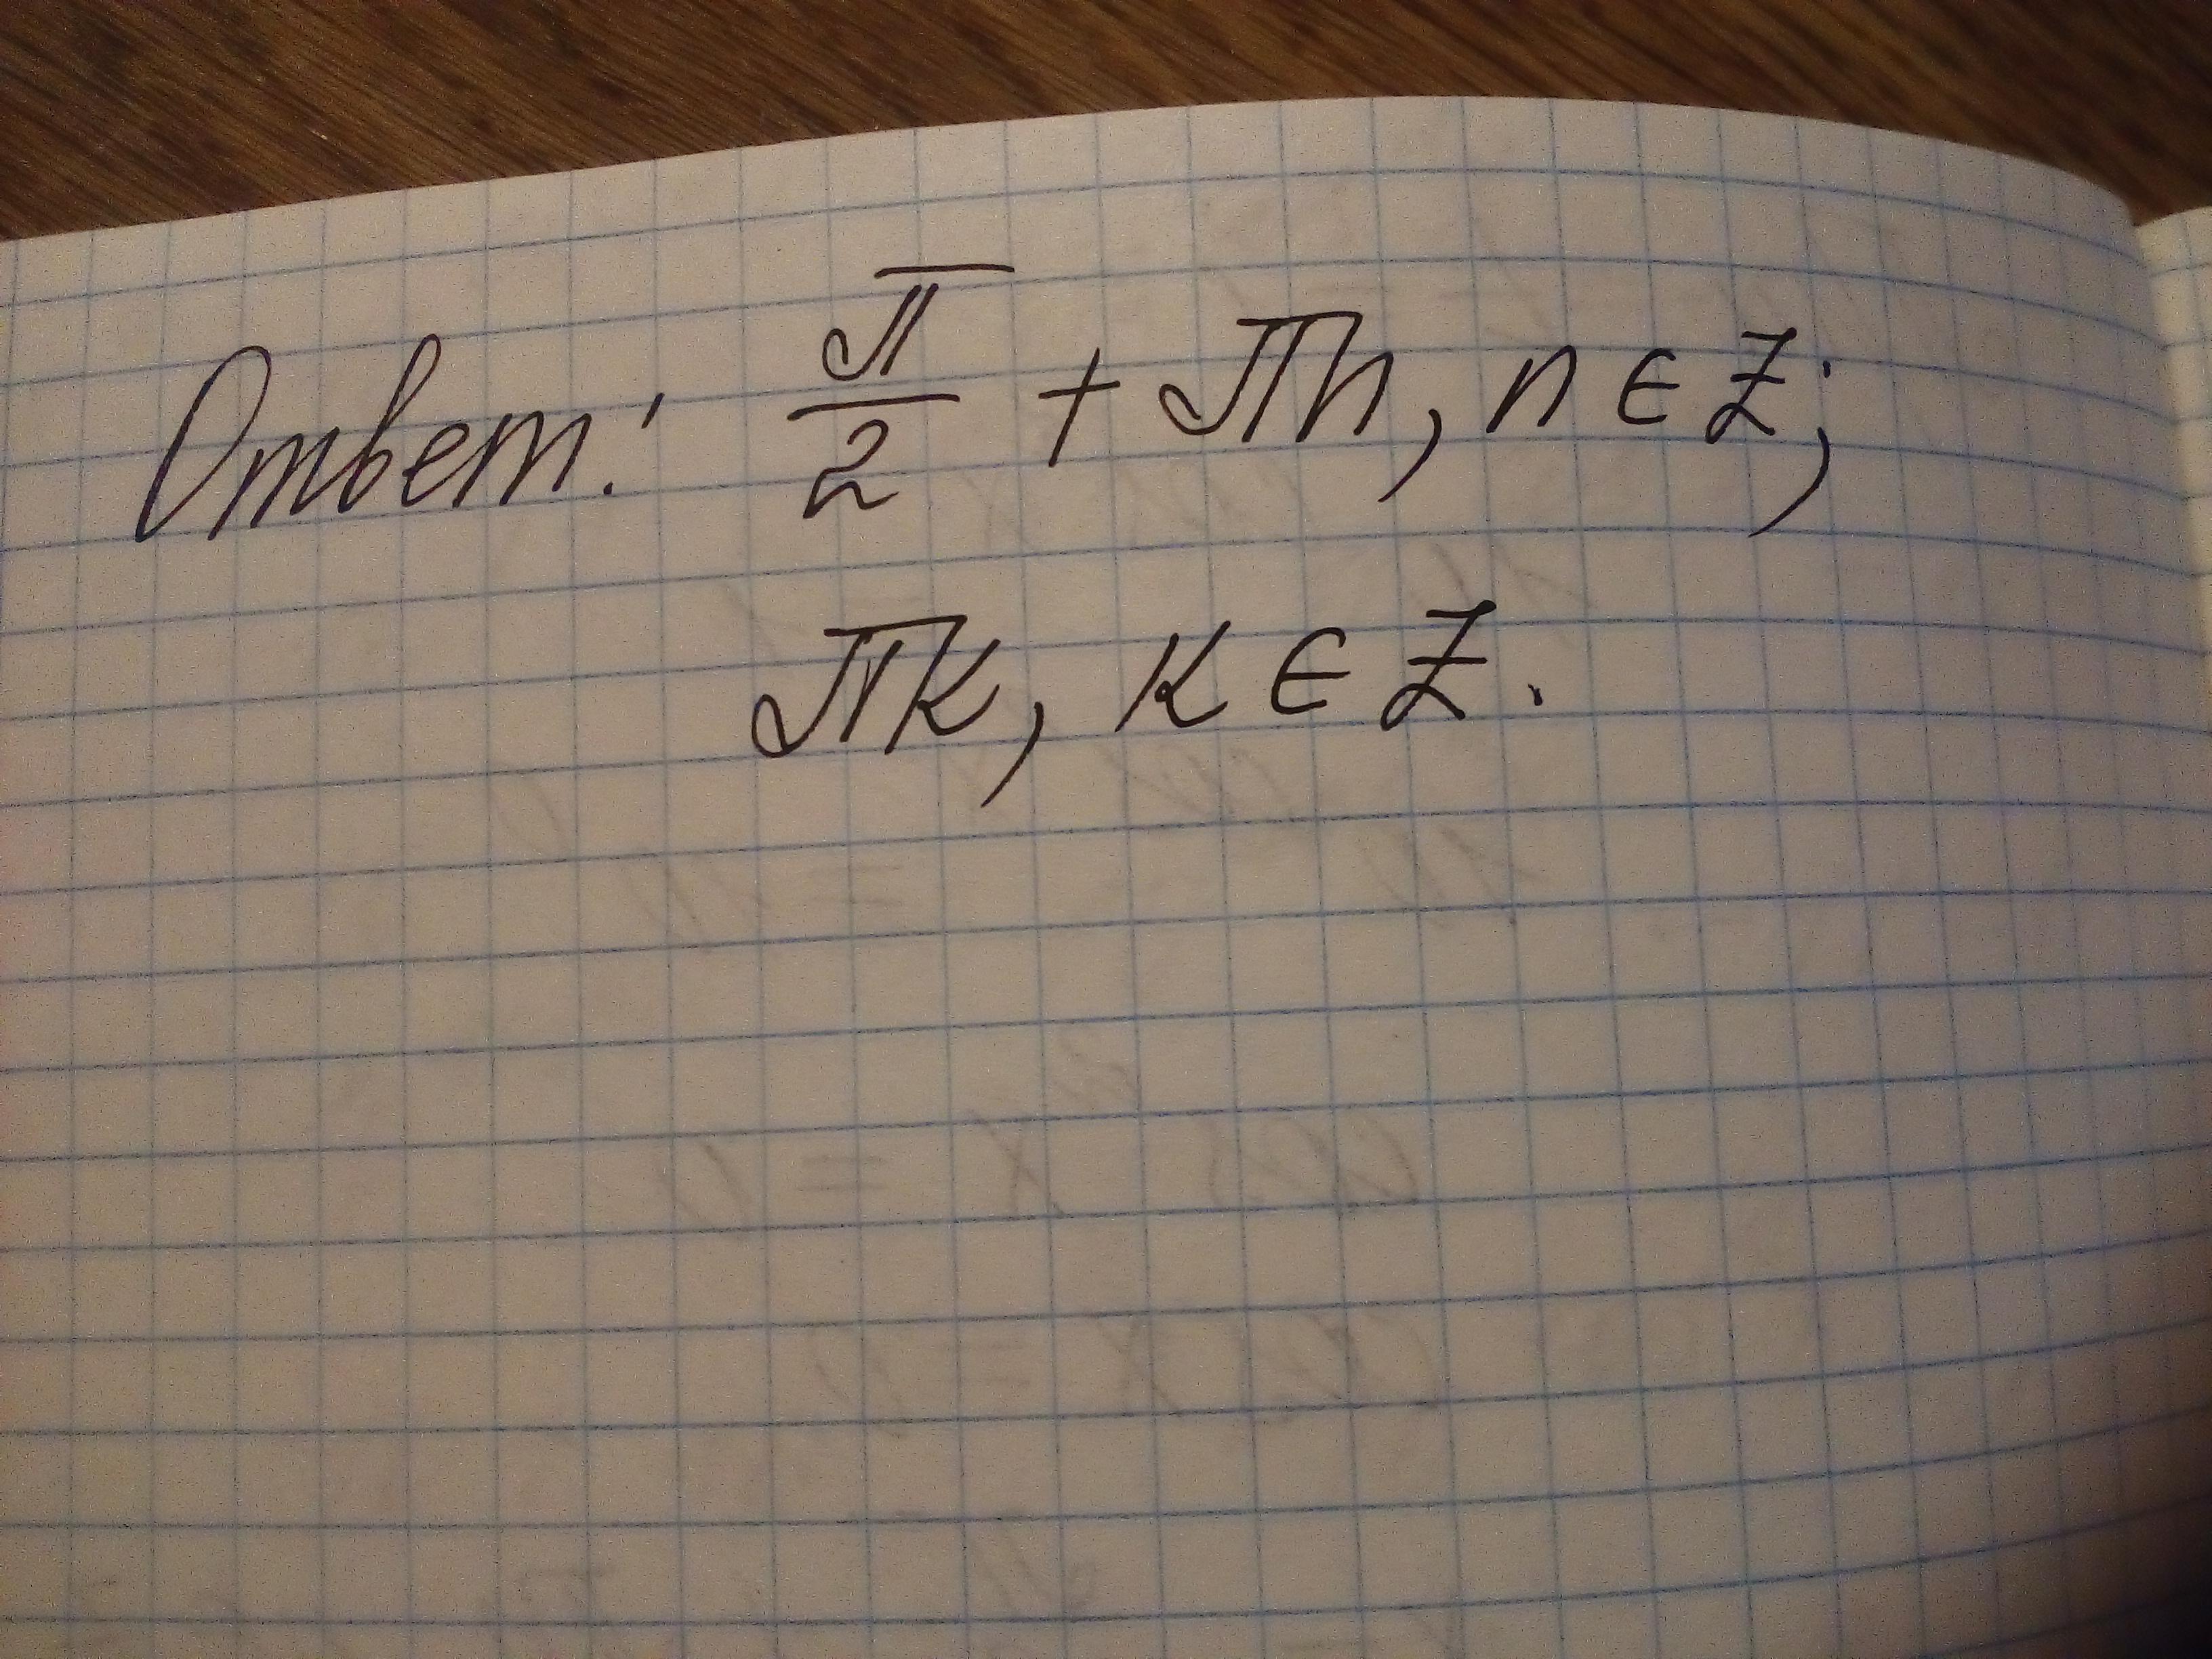 Ответ: π/2 + πn, n ∈ Z;
πk, k ∈ Z.